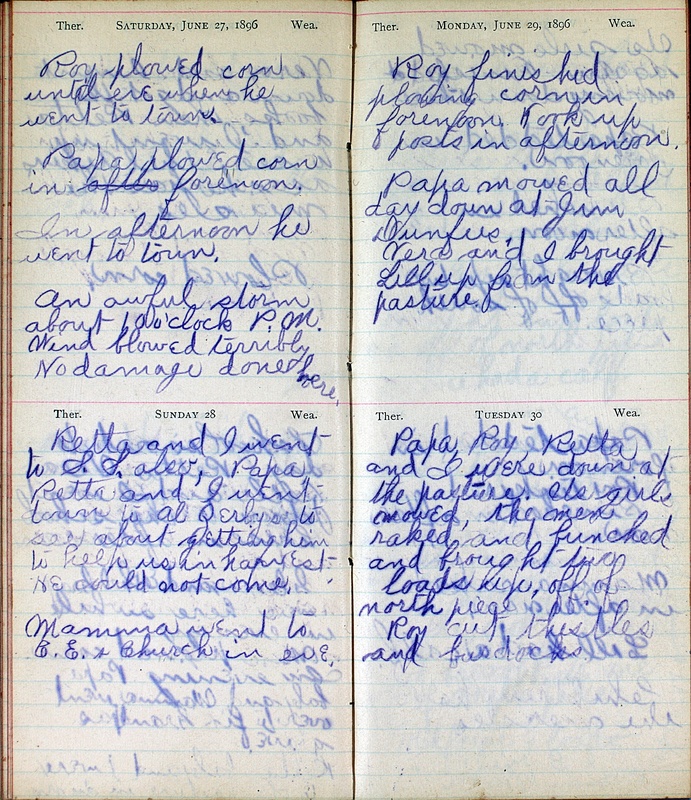 Ther. SATURDAY, JUNE 27, 1896 Wea.
Roy plowed corn
until eve when he
went to town.
Papa plowed corn
in after forenoon.
In afternoon he
went to town.
An awful storm
about 10 o'clock P.M.
Wind blowed terribly
No damage done here.
Ther. SUNDAY 28 Wea.
Retta and I went
to S. S. alex, Papa
Retta and I went
town to Al Derbys to
see about getting him
to help us in harvest
He could not come.
Mamma went to
C. E. & Church in eve.
Ther. MONDAY, JUNE 29, 1896 Wea.
Roy finished
plowing corn in
forenoon. Took up
posts in afternoon.
Papa mowed all
day down at Jim
Vera and I brought
Lill up from the
pasture
Ther. TUESDAY 30 Wea.
Papa, Roy Retta
and I were down at
the pasture. Us girls
mowed, the men
raked, and bunched
and brought two
loads up, off of
north piece piece
Roy cut thistles
and burdocks.